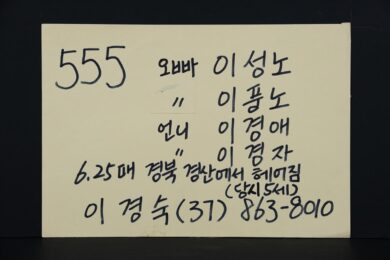 555 오빠 이성노
〃 이품노
언니 이경애
〃 이경자
6.25때 경북 경산에서 헤어짐
(당시 5세)
이경숙(37) 863-8010